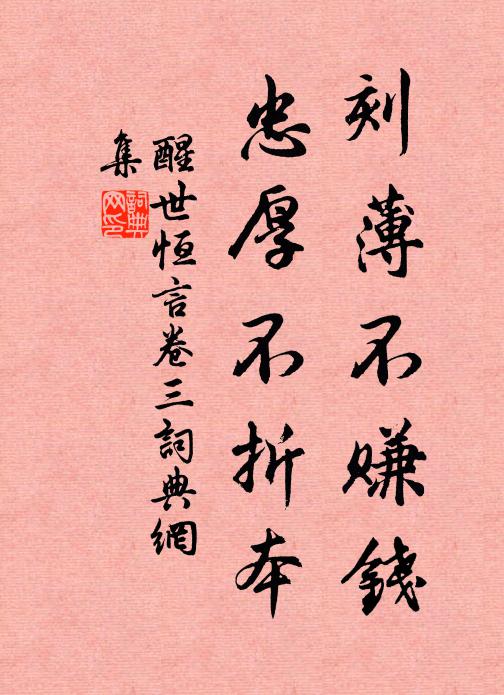 刻薄不赚錢
忠厚不折本
醒世恒言卷三詞典網
集
詞典
网印